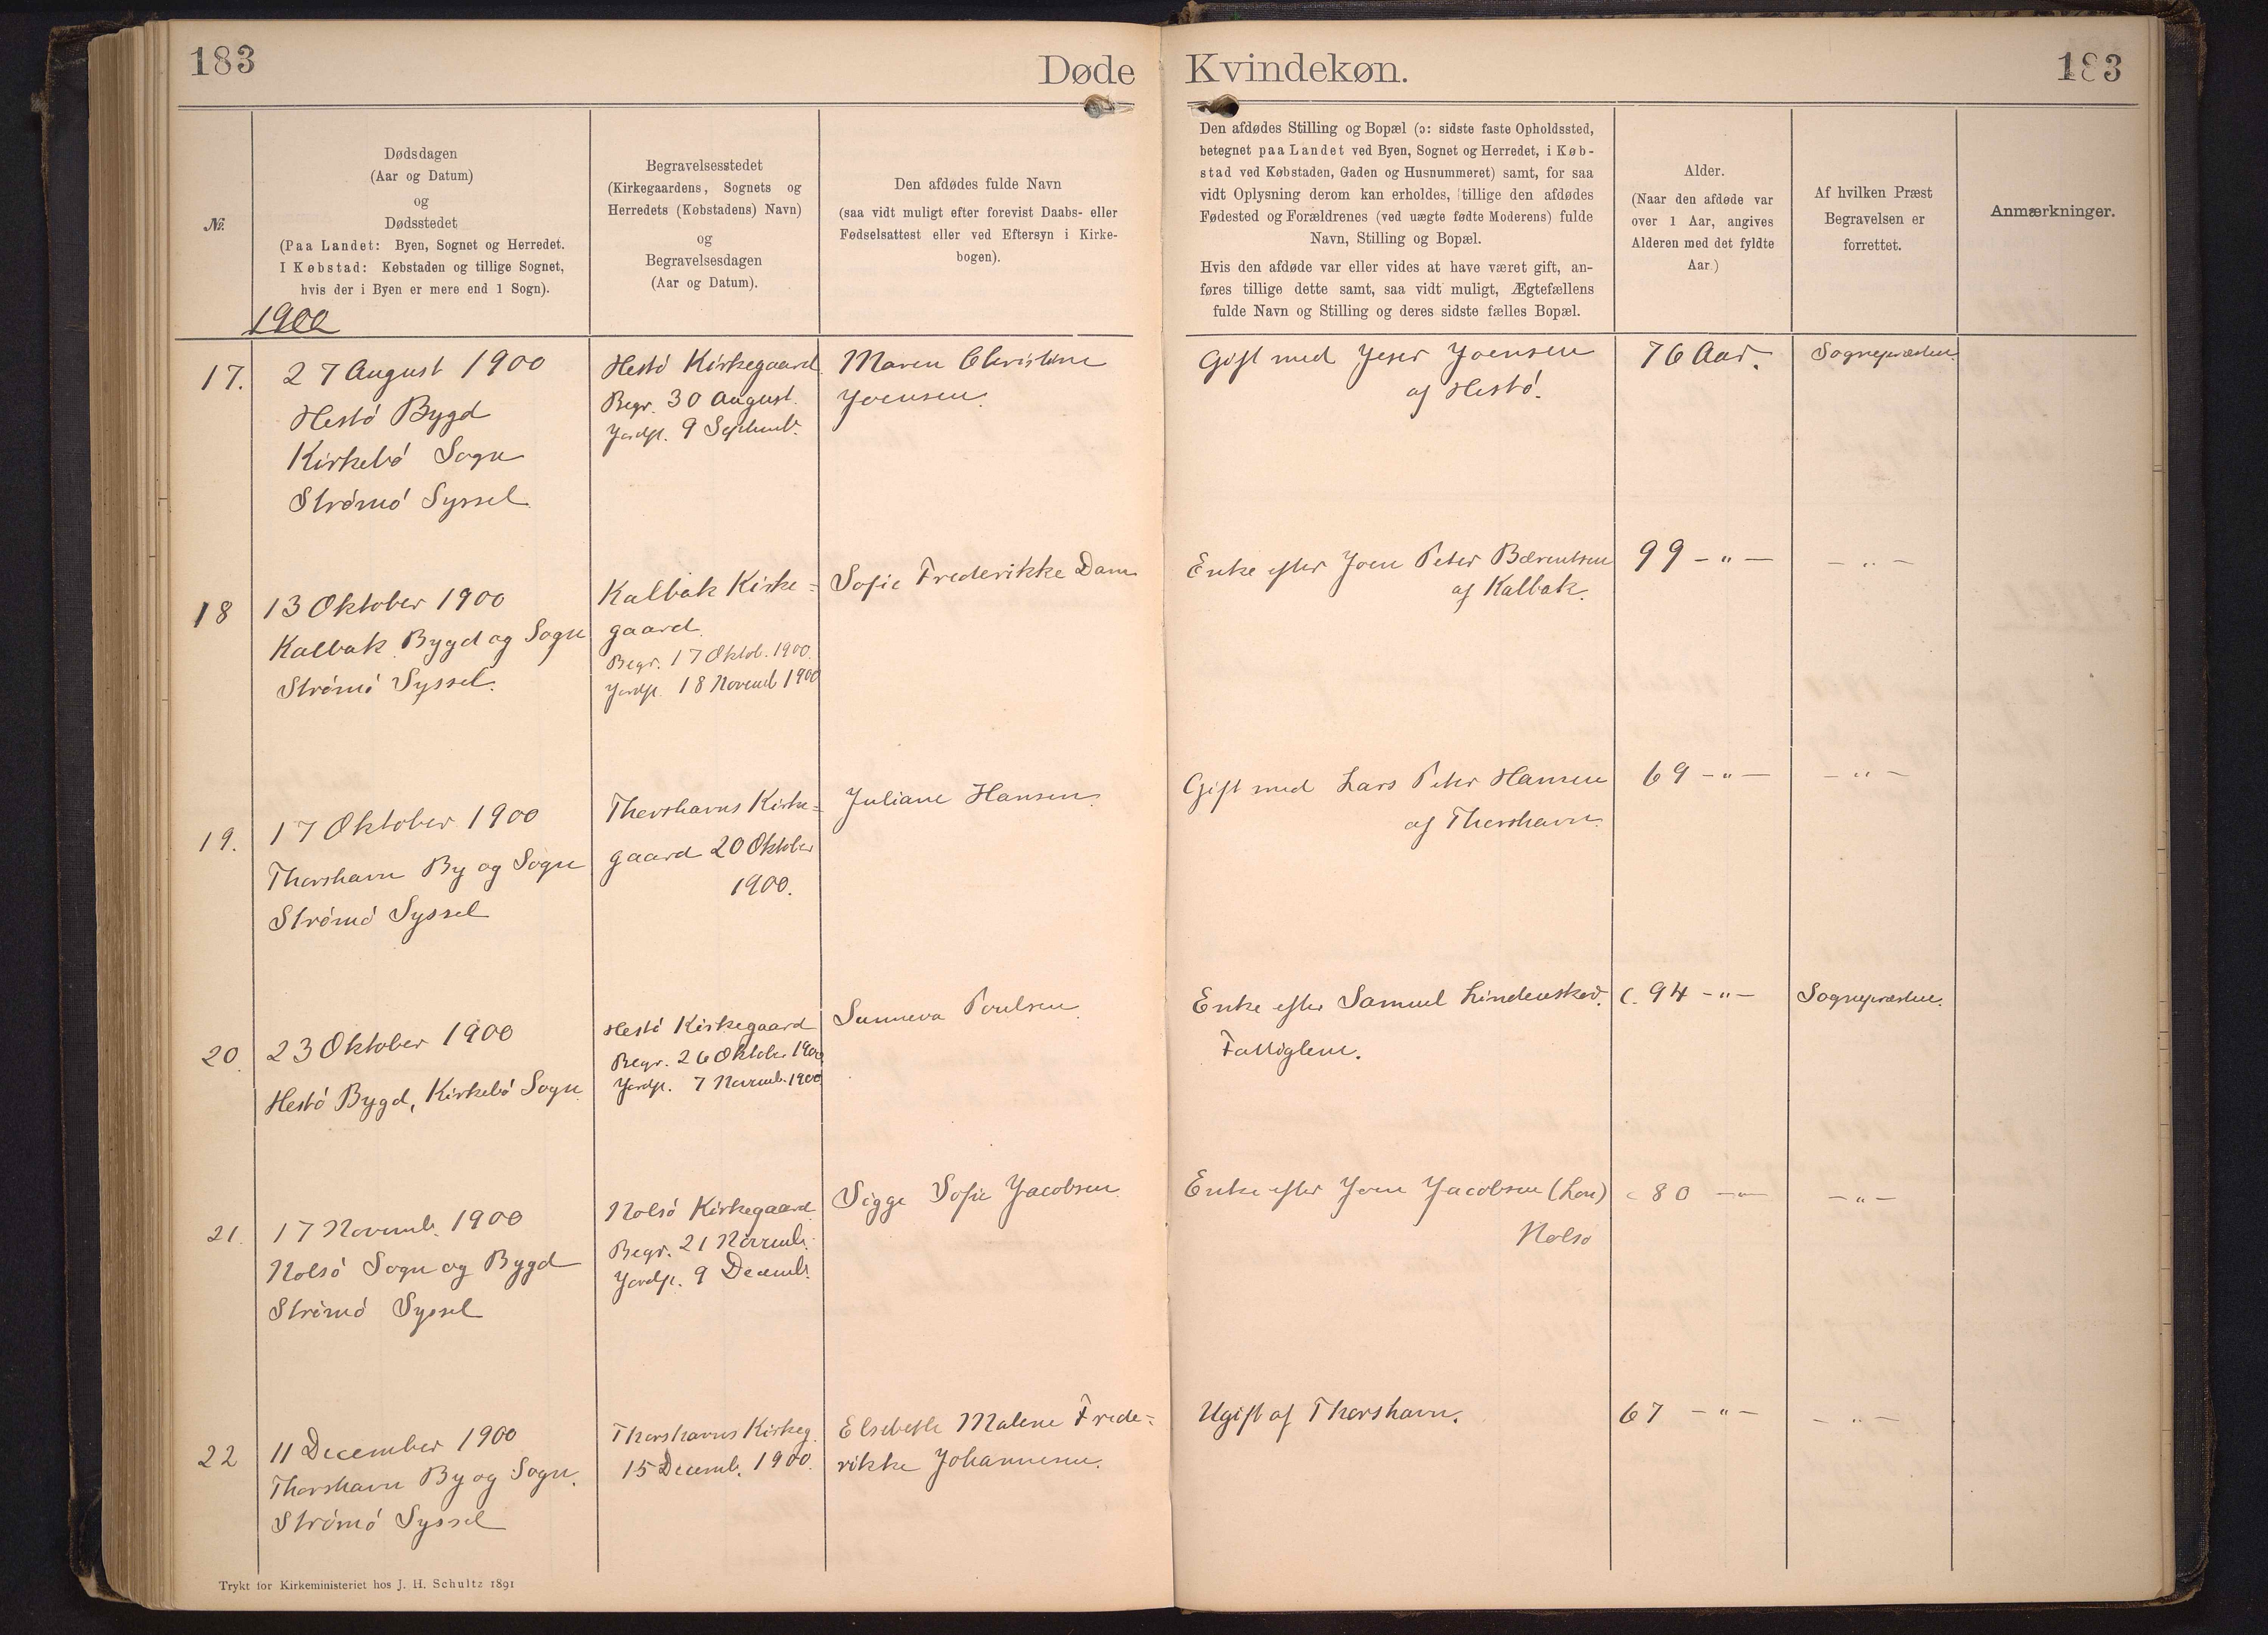 183
Døde
Kvindekøn.
183
№.
Dødsdagen
(Aar og Datum)
og
Dødsstedet
(Paa Landet: Byen, Sognet og Herredet.
I Købstad: Købstaden og tillige Sognet,
hvis der i Byen er mere end 1 Sogn).
1900
Begravelsesstedet
(Kirkegaardens, Sognets og
Herredets (Købstadens) Navn)
og
Begravelsesdagen
(Aar og Datum).
Den afdødes fulde Navn
(saa vidt muligt efter forevist Daabs- eller
Fødselsattest eller ved Eftersyn i Kirke-
bogen).
Den afdødes Stilling og Bopæl (ɔ: sidste faste Opholdssted,
betegnet paa Landet ved Byen, Sognet og Herredet, i Køb-
stad ved Købstaden, Gaden og Husnummeret) samt, for saa
vidt Oplysning derom kan erholdes, tillige den afdødes
Fødested og Forældrenes (ved uægte fødte Moderens) fulde
Navn, Stilling og Bopæl.
Hvis den afdøde var eller vides at have været gift, an-
føres tillige dette samt, saa vidt muligt, Ægtefællens
fulde Navn og Stilling og deres sidste fælles Bopæl.
Alder.
(Naar den afdøde var
over 1 Aar, angives
Alderen med det fyldte
Aar.)
Af hvilken Præst
Begravelsen er
forrettet.
Anmærkninger.
17.
27 August 1900
Hestø Bygd
Kirkebø Sogn
Strømø Syssel
Hestø Kirkegaard.
Begr. 30 August.
Jordp. 9 Septemb.
Maren Christine
Joensen.
Gift med Joensen
af Hestø.
76 Aar.
Sognepræsten.
18
13 Oktober 1900
Kalbak Bygd og Sogn
Strømø Syssel.
Kalbak Kirke=
gaard.
Begr. 17 Oktob. 1900.
Jordp. 18 Novemb 1900
Sofie Frederikke Dam
Enke efter Joen Peter Bærentsen
af Kalbak.
99 - " -
- " -
19.
17 Oktober 1900
Thorshavn By og Sogn
Strømø Syssel
Thorshavns Kirke=
gaard 20 Oktober
1900.
Juliane Hansen.
Gift med Lars Peter Hansen
af Thorshavn.
69 - " -
- " -
20.
23 Oktober 1900
Hestø Bygd, Kirkebø Sogn.
Hestø Kirkegaard
Begr. 26 Oktober 1900.
Jordp. 7 Novemb. 1900
Sunneva Poulsen.
Enke efter Samuel Lindenskov.
Fattiglem.
c. 94 - " -
Sognepræsten.
21.
17 Novemb. 1900
Nolsø Sogn og Bygd
Strømø Syssel
Nolsø Kirkegaard
Begr. 21 Novemb.
Jordp. 9 Decemb.
Sigge Sofie Jacobsen
Enke efter Joen Jacobsen (Lon)
Nolsø
c 80 - " -
- " -
22
11 December 1900
Thorshavn By og Sogn.
Strømø Syssel
Thorshavns Kirkeg.
15 Decemb. 1900.
Elsebeth Malene Frede=
rikke Johannesen.
Ugift af Thorshavn.
67 - " -
- " -
Trykt for Kirkeministeriet hos J. H. Schultz 1891